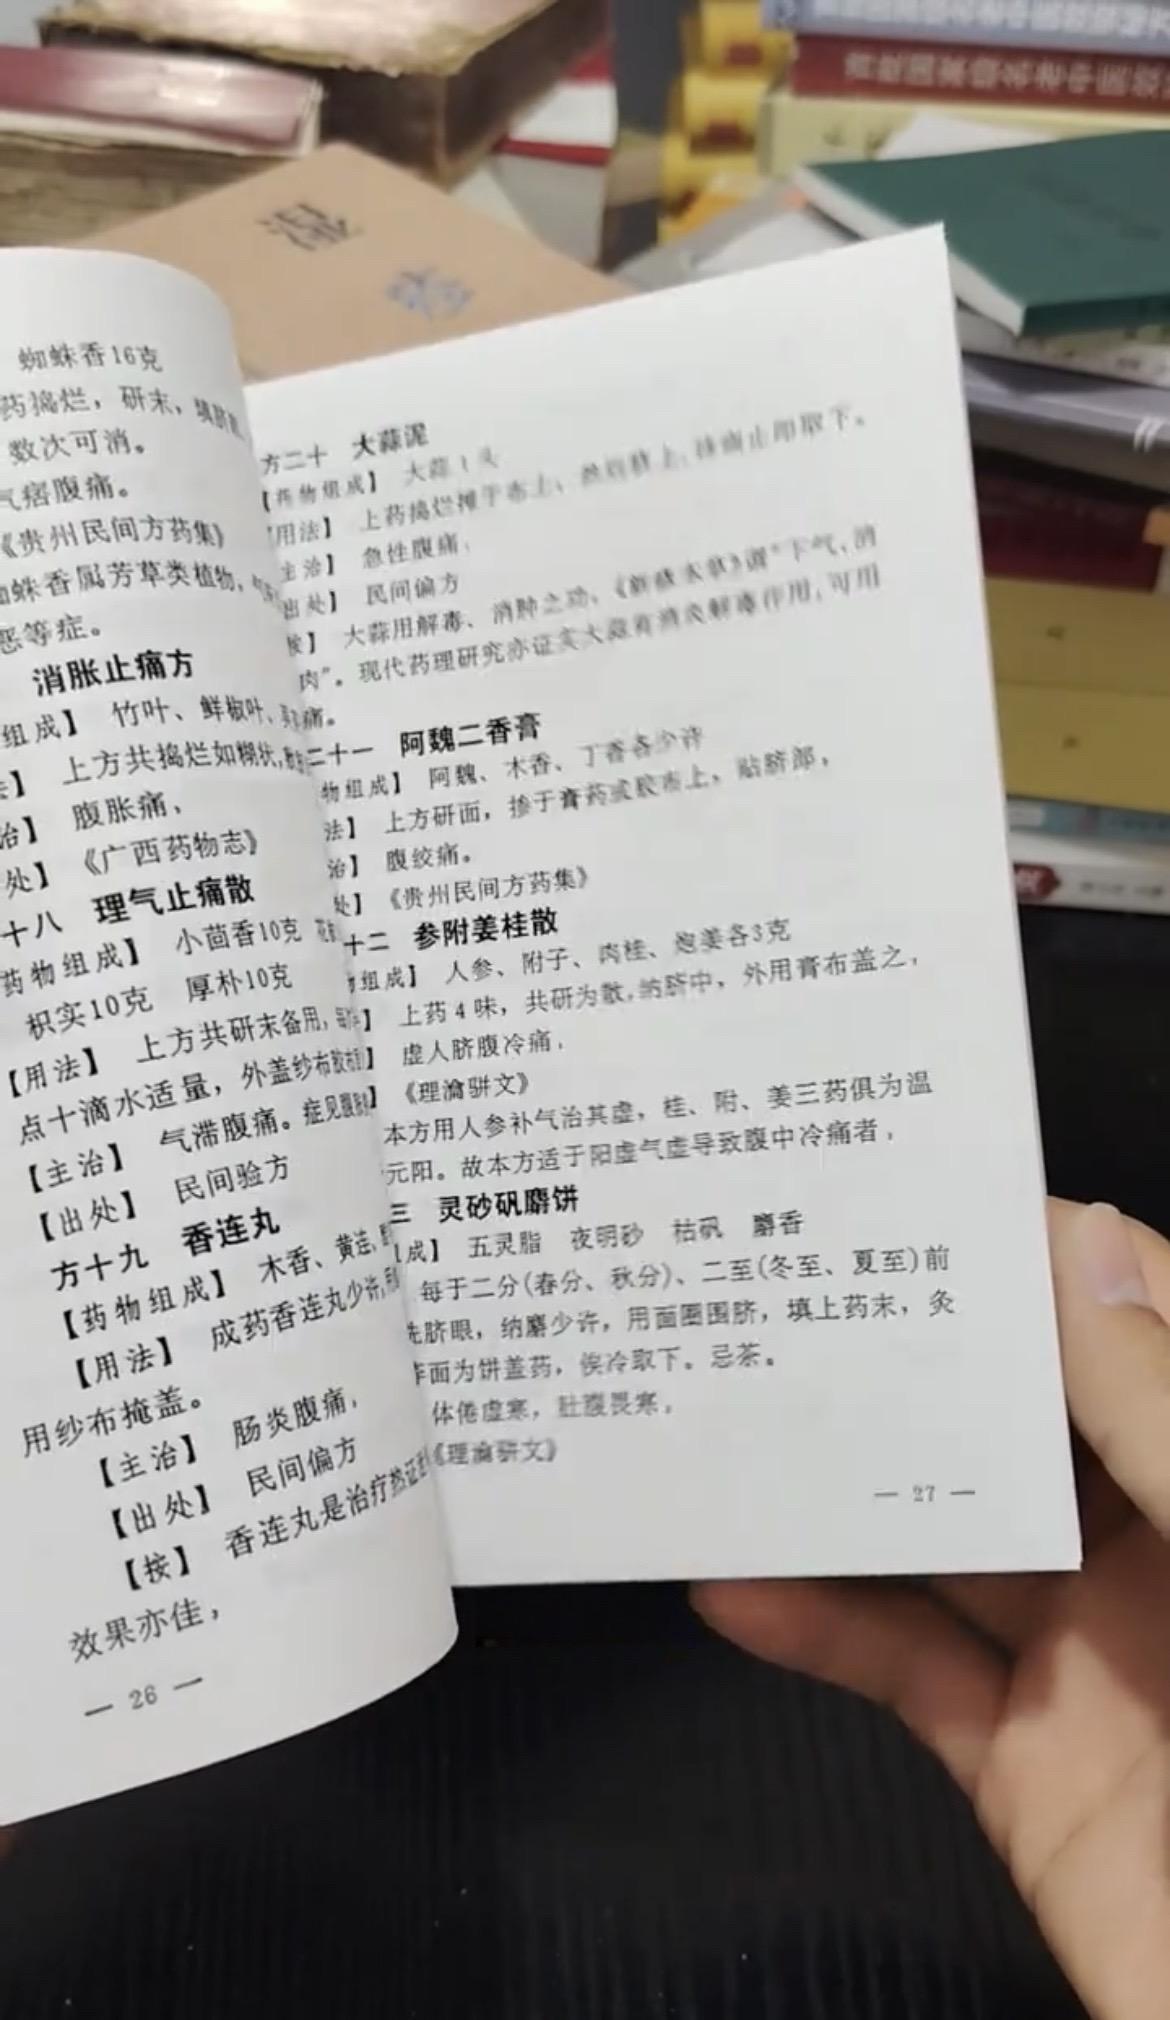 湿
蜘蛛香16克
药捣烂，研末，填脐
数次可消。
气痞腹痛。
《贵州民间方药集》
蜘蛛香属芳草类植物，
恶等症。
消胀止痛方
组成】 竹叶、鲜椒叶、
】 上方共捣烂如糊状，
治】 腹胀痛。
处】 《广西药物志》
十八 理气止痛散
药物组成】 小茴香10克
枳实10克 厚朴10克
【用法】 上方共研末备用，
点十滴水适量，外盖纱布
【主治】 气滞腹痛。症见
【出处】 民间验方
方十九 香连丸
【药物组成】 木香、黄连，
【用法】 成药香连丸少许，
用纱布掩盖。
【主治】 肠炎腹痛。
【出处】 民间偏方
【按】 香连丸是治疗热证
效果亦佳。
— 26 —
方二十 大蒜泥
【药物组成】 大蒜1头
用法】 上药捣烂摊于布上，然后脐上，待痛止即取下。
主治】 急性腹痛。
出处】 民间偏方
按】 大蒜用解毒、消肿之功，《新修本草》谓"下气、消
肉"。现代药理研究亦证实大蒜有消炎解毒作用，可用
痛。
二十一 阿魏二香膏
物组成】 阿魏、木香、丁香各少许
法】 上方研面，掺于膏药或胶布上，贴脐部。
治】 腹绞痛。
处】 《贵州民间方药集》
十二 参附姜桂散
组成】 人参、附子、肉桂、炮姜各3克
】 上药4味，共研为散，纳脐中，外用膏布盖之。
】 虚人脐腹冷痛。
】 《理瀹骈文》
本方用人参补气治其虚，桂、附、姜三药俱为温
元阳。故本方适于阳虚气虚导致腹中冷痛者。
三 灵砂矾麝饼
成】 五灵脂 夜明砂 枯矾 麝香
每于二分(春分、秋分)、二至(冬至、夏至)前
洗脐眼，纳麝少许，用面圈围脐，填上药末，灸
面为饼盖药，俟冷取下。忌茶。
体倦虚寒，肚腹畏寒。
《理瀹骈文》
— 27 —